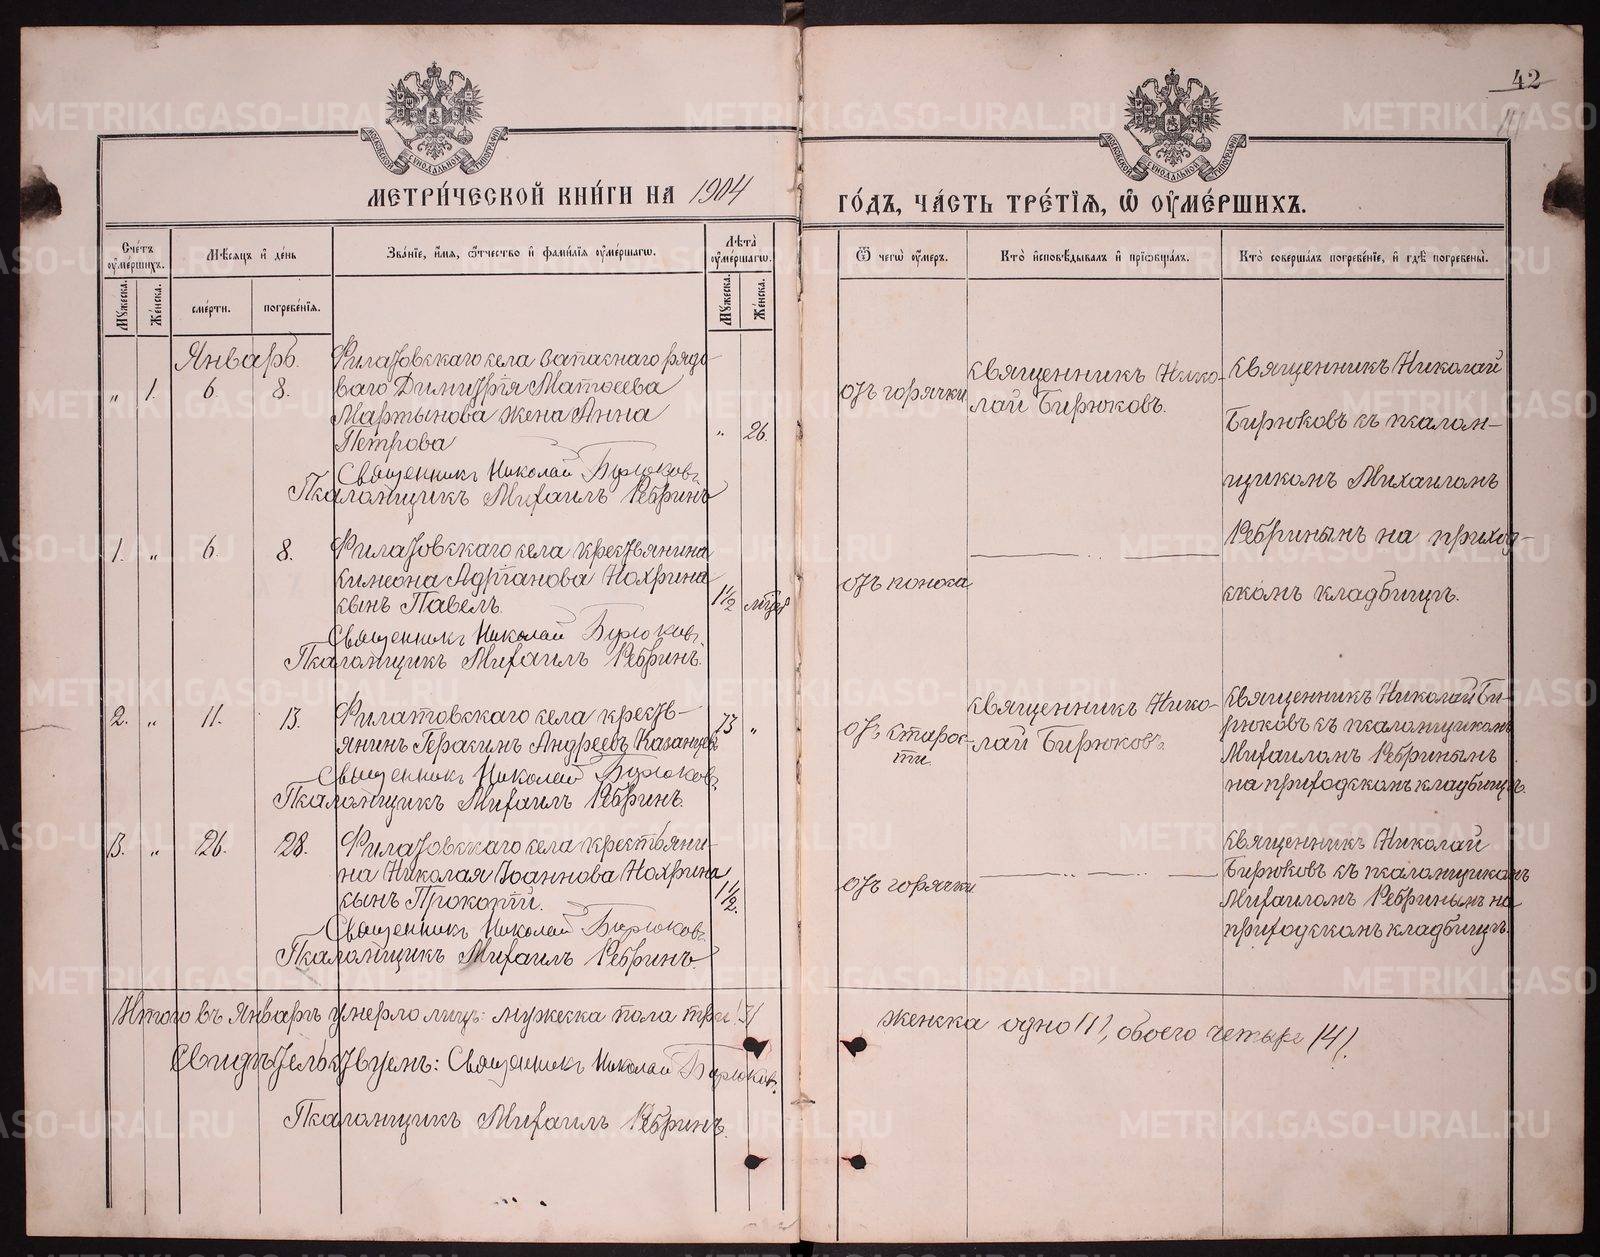 42
МОСКОВСКОЙ СУНОДАЛЬНОЙ ТИПОГРАФІИ
МОСКОВСКОЙ СУНОДАЛЬНОЙ ТИПОГРАФІИ
МЕТРИ́ЧЕСКОЙ КНИ́ГИ НА 1904
ГО́ДЪ, ЧА́СТЬ ТРЕ́ТІѦ, Ѿ ОУ҆МЕ́РШИХЪ.
Сче́тъ оу҆ме́ршихъ.
Мѣ́сѧцъ и҆ де́нь
Зва́ніе, и҆́мѧ, ѻ҆́тчество и҆ фами́лїѧ оу҆ме́ршагѡ.
Лѣта̀ оу҆ме́ршагѡ.
Ѿ чегѡ̀ оу҆́меръ.
Кто̀ и҆сповѣ́дывалъ и҆ прїѡбща́лъ.
Кто̀ соверша́лъ погребе́нїе, и҆ гдѣ̀ погребены̀.
Мꙋ́жеска.
Же́нска.
сме́рти.
погребе́нїѧ.
Мꙋ́жеска.
Же́нска.
Январь.
„ 1. 6. 8.
Филатовскаго села запаснаго рядо-
ваго Димитрія Матѳеева
Мартынова жена Анна
Петрова
„ 26.
Священникъ Николай Бирюковъ
Псаломщикъ Михаилъ Ребринъ
отъ горячки
священникъ Нико-
лай Бирюковъ.
священникъ Николай
Бирюковъ съ псалом-
щикомъ Михаиломъ
Ребринымъ на приход-
скомъ кладбищѣ.
1. „ 6. 8.
Филатовскаго села крестьянина
Симеона Адріанова Нохрина
сынъ Павелъ.
1½
Священникъ Николай Бирюковъ.
Псаломщикъ Михаилъ Ребринъ.
отъ поноса
2. „ 11. 13.
Филатовскаго села кресть-
янинъ Герасимъ Андреевъ Казанцевъ
73 „
Священникъ Николай Бирюковъ.
Псаломщикъ Михаилъ Ребринъ.
отъ старос-
ти.
священникъ Нико-
лай Бирюковъ.
священникъ Николай Би-
рюковъ съ псаломщикомъ
Михаиломъ Ребринымъ
на приходскомъ кладбищѣ.
3. „ 26. 28.
Филатовскаго села крестьяни-
на Николая Іоаннова Нохрина
сынъ Прокопій.
1½.
Священникъ Николай Бирюковъ.
Псаломщикъ Михаилъ Ребринъ.
отъ горячки
священникъ Николай
Бирюковъ съ псаломщикомъ
Михаиломъ Ребринымъ на
приходскомъ кладбищѣ.
Итого въ Январѣ умерло лицъ: мужеска пола три /3/
женска одно /1/, обоего четыре /4/.
Свидѣтельствуемъ: Священникъ Николай Бирюковъ.
Псаломщикъ Михаилъ Ребринъ.
METRIKI.GASO-URAL.RU